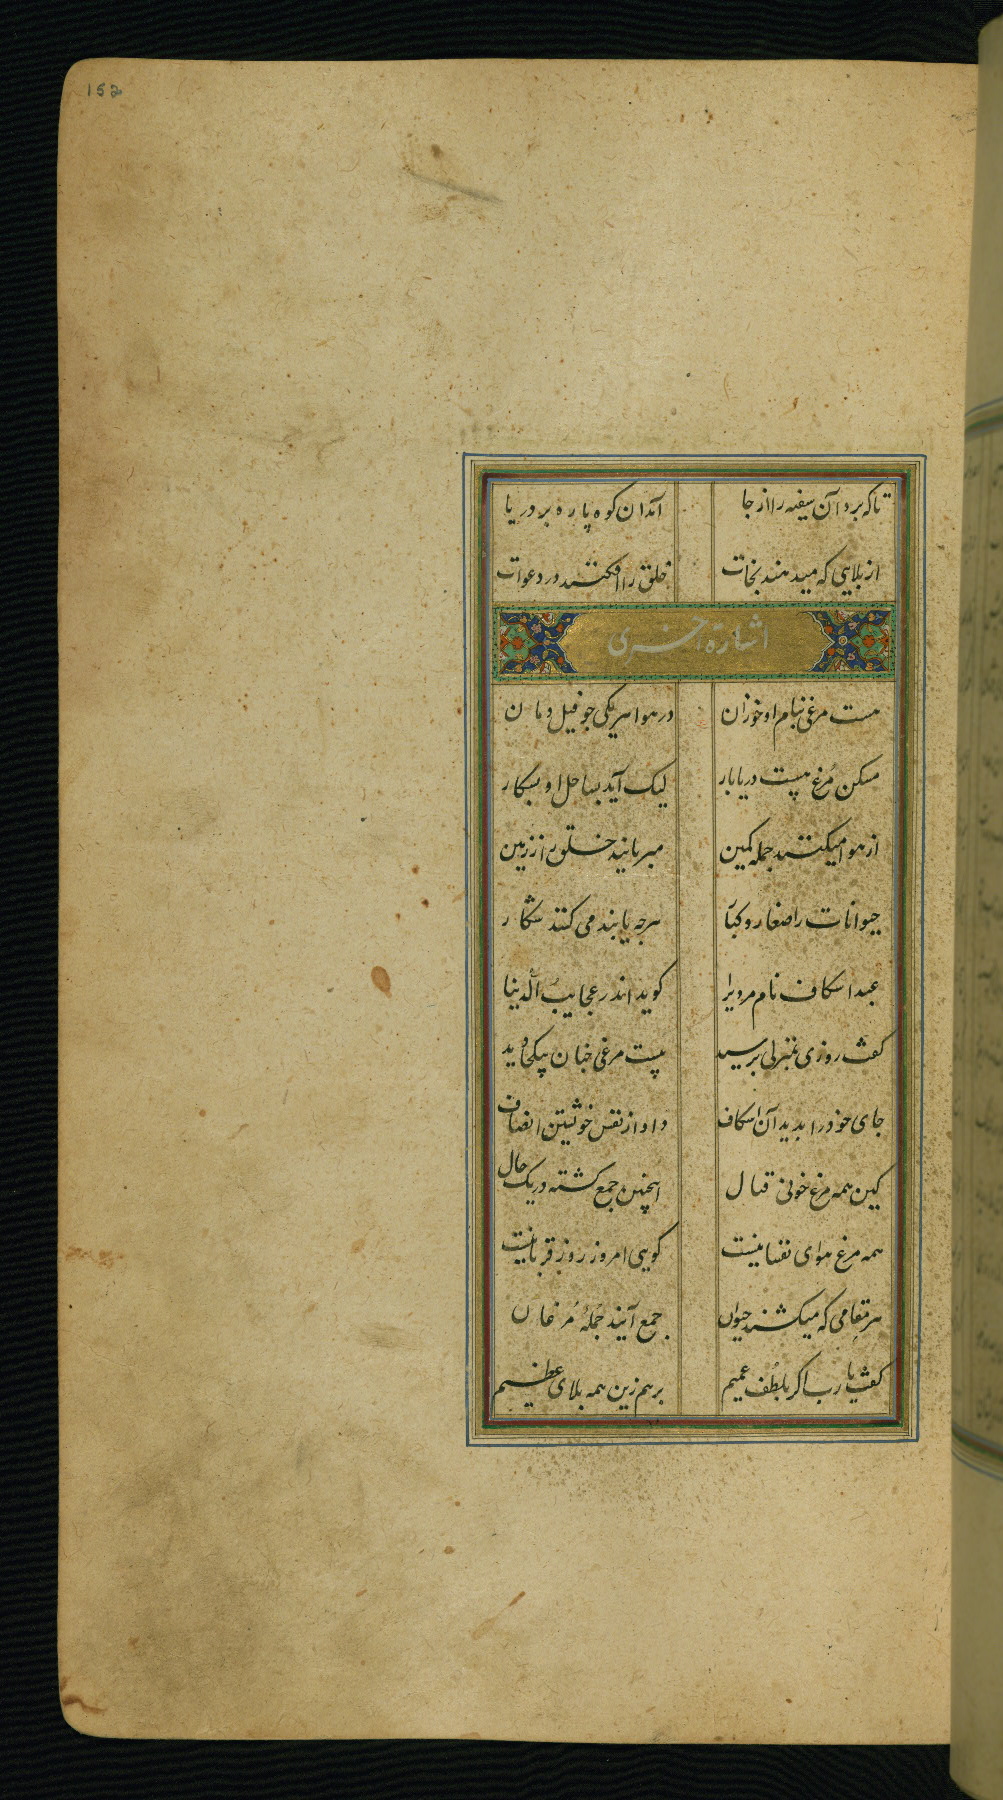 152
تا که برد آن سفینه را از جا آمدان کوه پاره بر دریا
از بلایی که میدهند نجات خلق را افکنند در دعوات
اشارة اخری
هست مرغی بنام او خوزان در هوا هریکی جو فیل دمان
مسکن مرغ هست دریا بار لیک آید بساحل او بشکار
از هوا میکنند جمله کمین میربایند خلق از زمین
حیوانات را صغار و کبار هرجه یابند می کنند شکار
عبد اسکاف نام مرد کوید اندر عجایب الدنیا
کفت روزی بمنزلی برسید بیست مرغی جنان بیکجا دید
جای خود را بدید آن اسکاف داد از نفس خویشتن انصاف
کین همه مرغ خونی قتال اینچنین جمع کشته در یک حال
همه مرغ هوای نفسانیست کویی امروز روز قربانیست
هر مقامی که میکشند حیوان جمع آیند جمله مرغان
کفت یا رب اکر بلطف عمیم برهم زین همه بلای عظیم